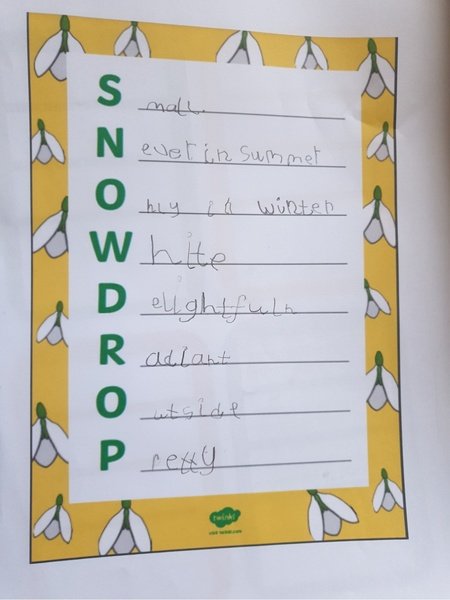 S mall.
N ever in summer
O nly in winter
W hite
D elightfuln
R adiant
O utside
P retty
twinkl
visit twinkl.com